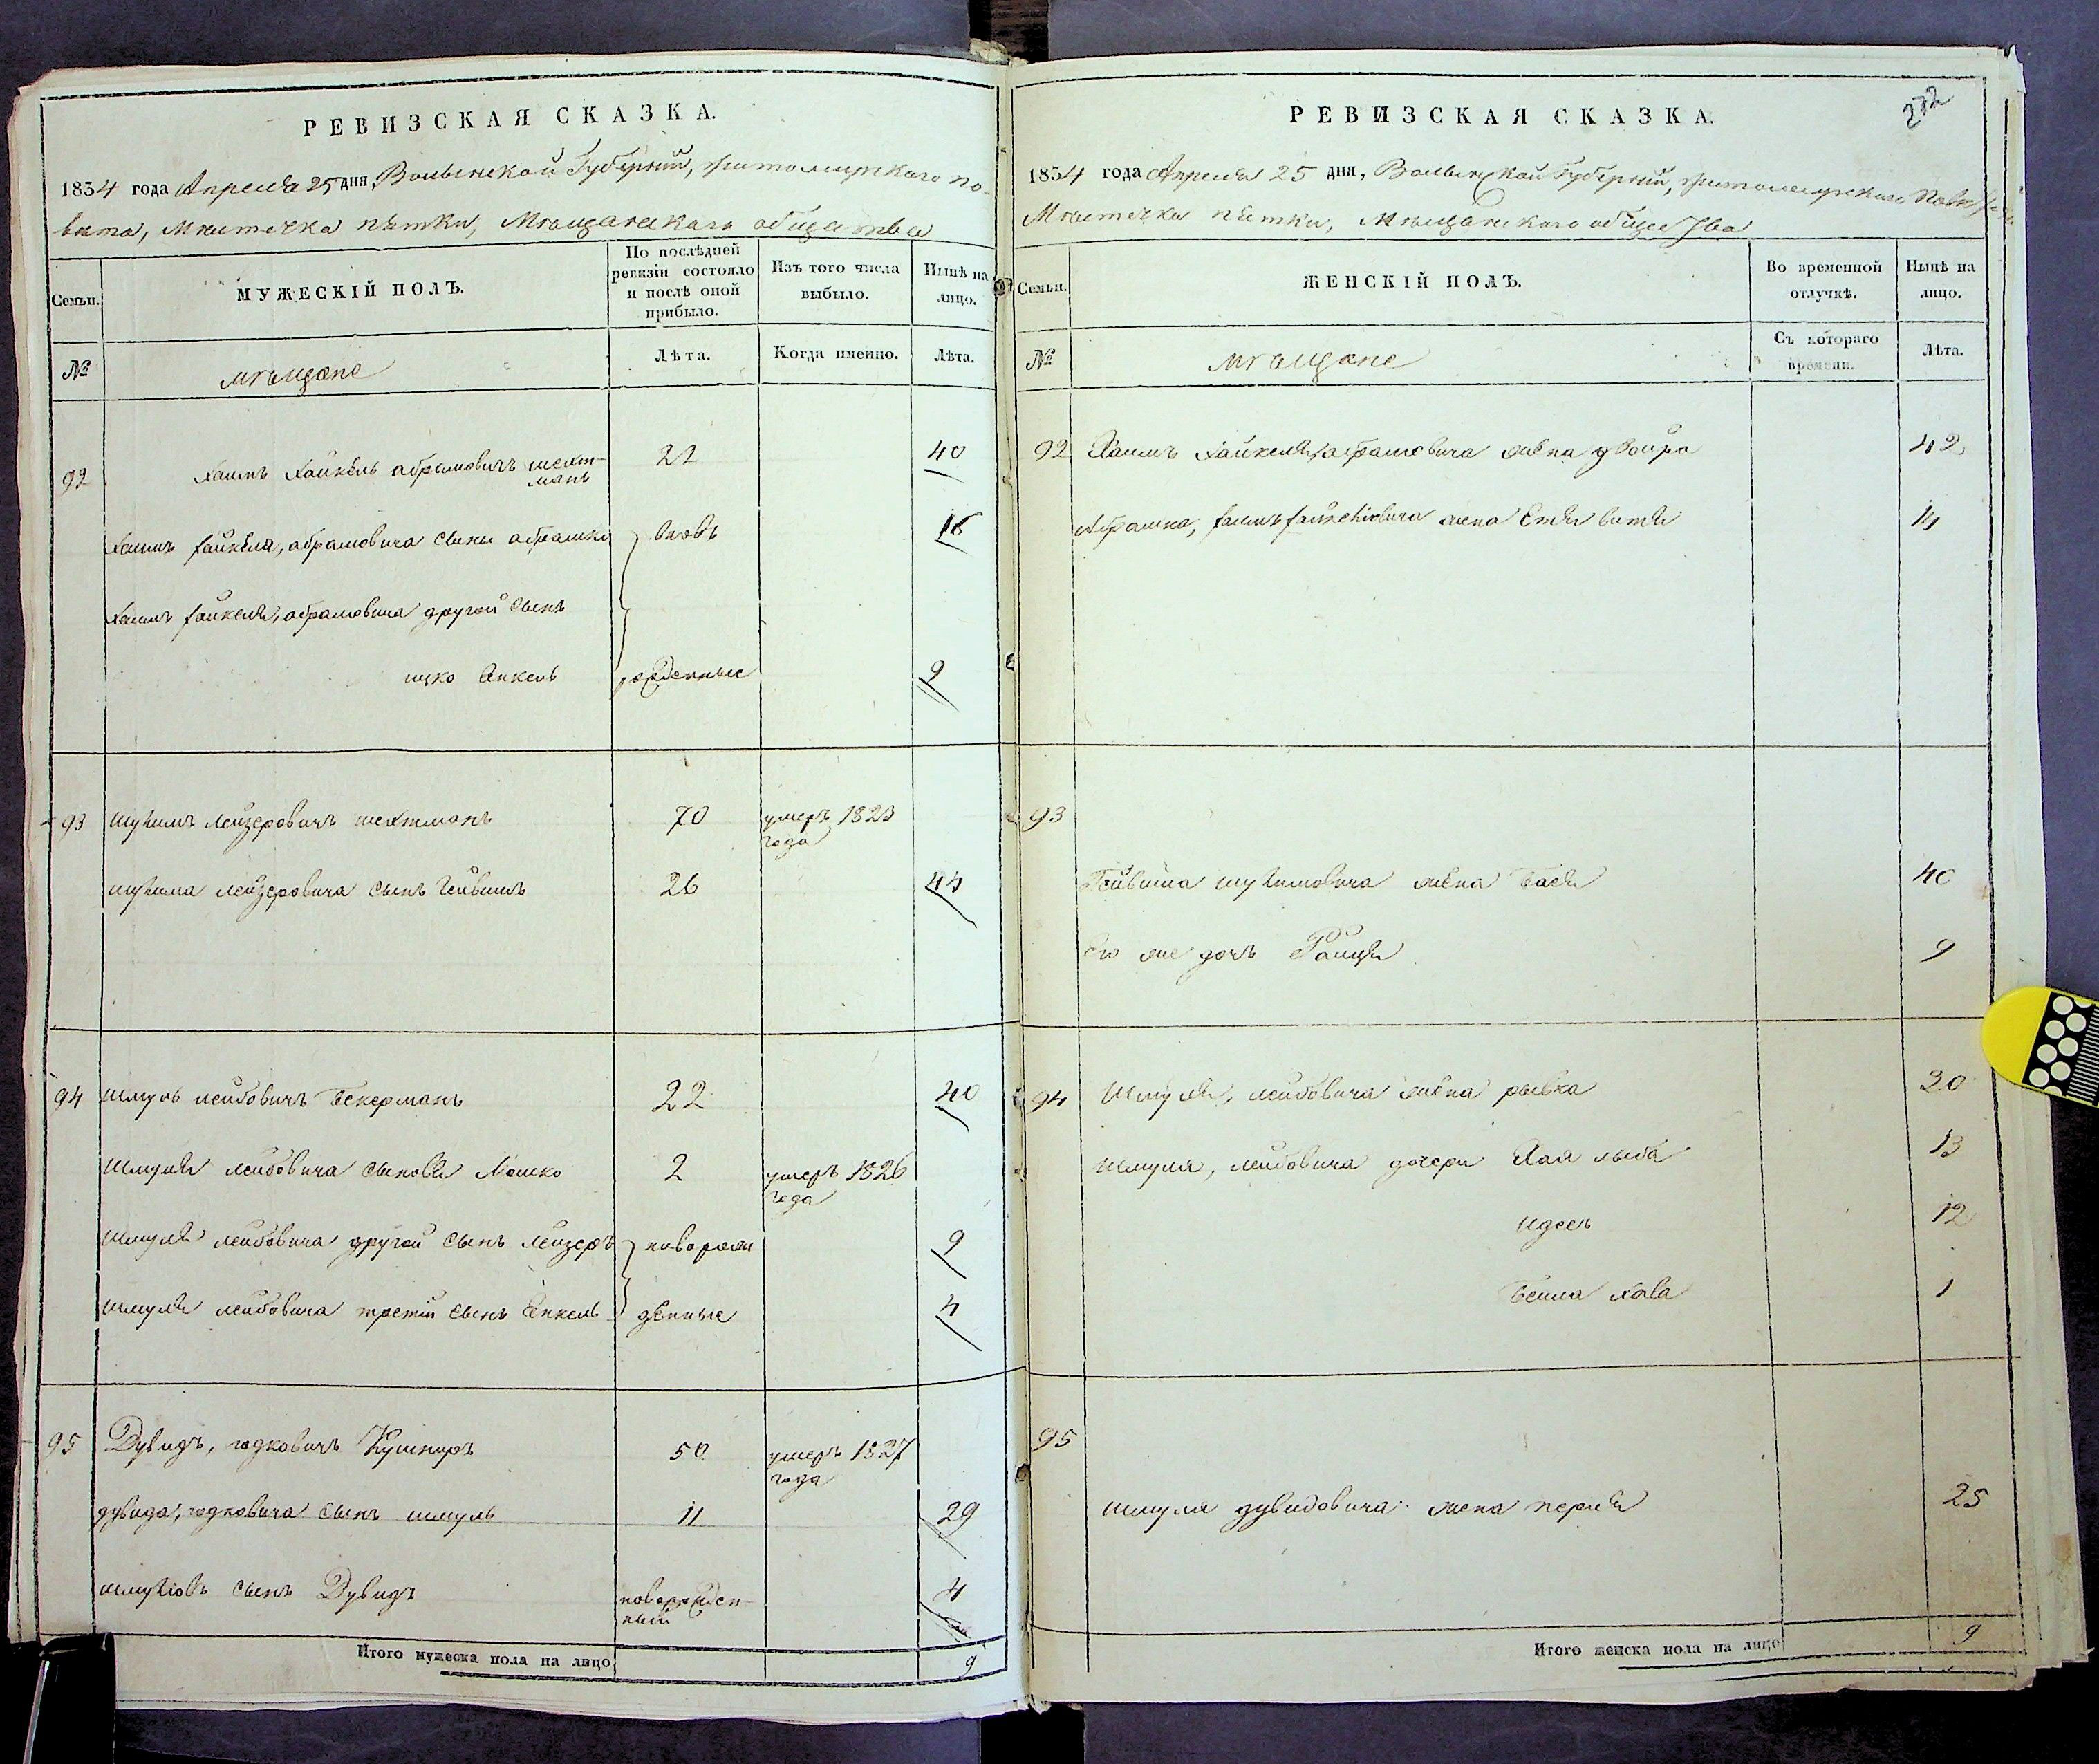 РЕВИЗСКАЯ СКАЗКА.
1834 года Апреля 25 дня, Волынской Губерній, житомирского по-
вѣта, Мѣстечка пѣтки, Мѣщанского общества
Семьи.
МУЖЕСКІЙ ПОЛЪ.
По послѣдней ревизіи состояло и послѣ оной прибыло.
Изъ того числа выбыло.
Нынѣ на лицо.
№
мѣщане
Лѣта.
Когда именно.
Лѣта.
92 Хаимъ Хайкель абрамовичъ шехт- 22 40
манъ
Хаимъ хайкеля, абрамовича сыны абрашко вновь 16
Хаимъ хайкеля, абрамовича другой сынъ
ицко Янкель рожденные 9
93 шулимъ лейзеровичъ шехтманъ 70 умеръ 1823
года
шулима лейзеровича сынъ Гейвишъ 26 44
94 шмуль лейбовичъ Бекерманъ 22 40
шмуля лейбовича сыновя Мошко 2 умеръ 1826
года
шмуля лейбовича другой сынъ лейзеръ новорож 9
шмуля лейбовича третій сынъ Янкель денные 4
95 Дувидъ, юдковичъ Кушниръ 50 умеръ 1827
года
дувида, юдковича сынъ шмуль 11 29
шмулювъ сынъ Дувидъ новорожден- 4
ный
Итого мужеска пола на лицо 9
272
РЕВИЗСКАЯ СКАЗКА.
1834 года Апреля 25 дня, Волынской Губерній, житомирского Повѣта
Мѣстечка пѣтки, Мѣщанского общества
Семьи.
ЖЕНСКІЙ ПОЛЪ.
Во временной отлучкѣ.
Нынѣ на лицо.
№
мѣщане
Съ котораго времени.
Лѣта.
92 Хаимъ хайкеля, абрамовича жена двойра 42
Абрашка, хаимъ хайкелювича жена Етя витя 14
93
Гейвиша шулимовича жена Бася 40
Его же дочь Раица 9
94 Шмуля, лейбовича жена рывка 30
шмуля, лейбовича дочери Хая лыба 13
идесь 12
Бейла хава 1
95
шмуля дувидовича жена перля 25
Итого женска пола на лицо 9